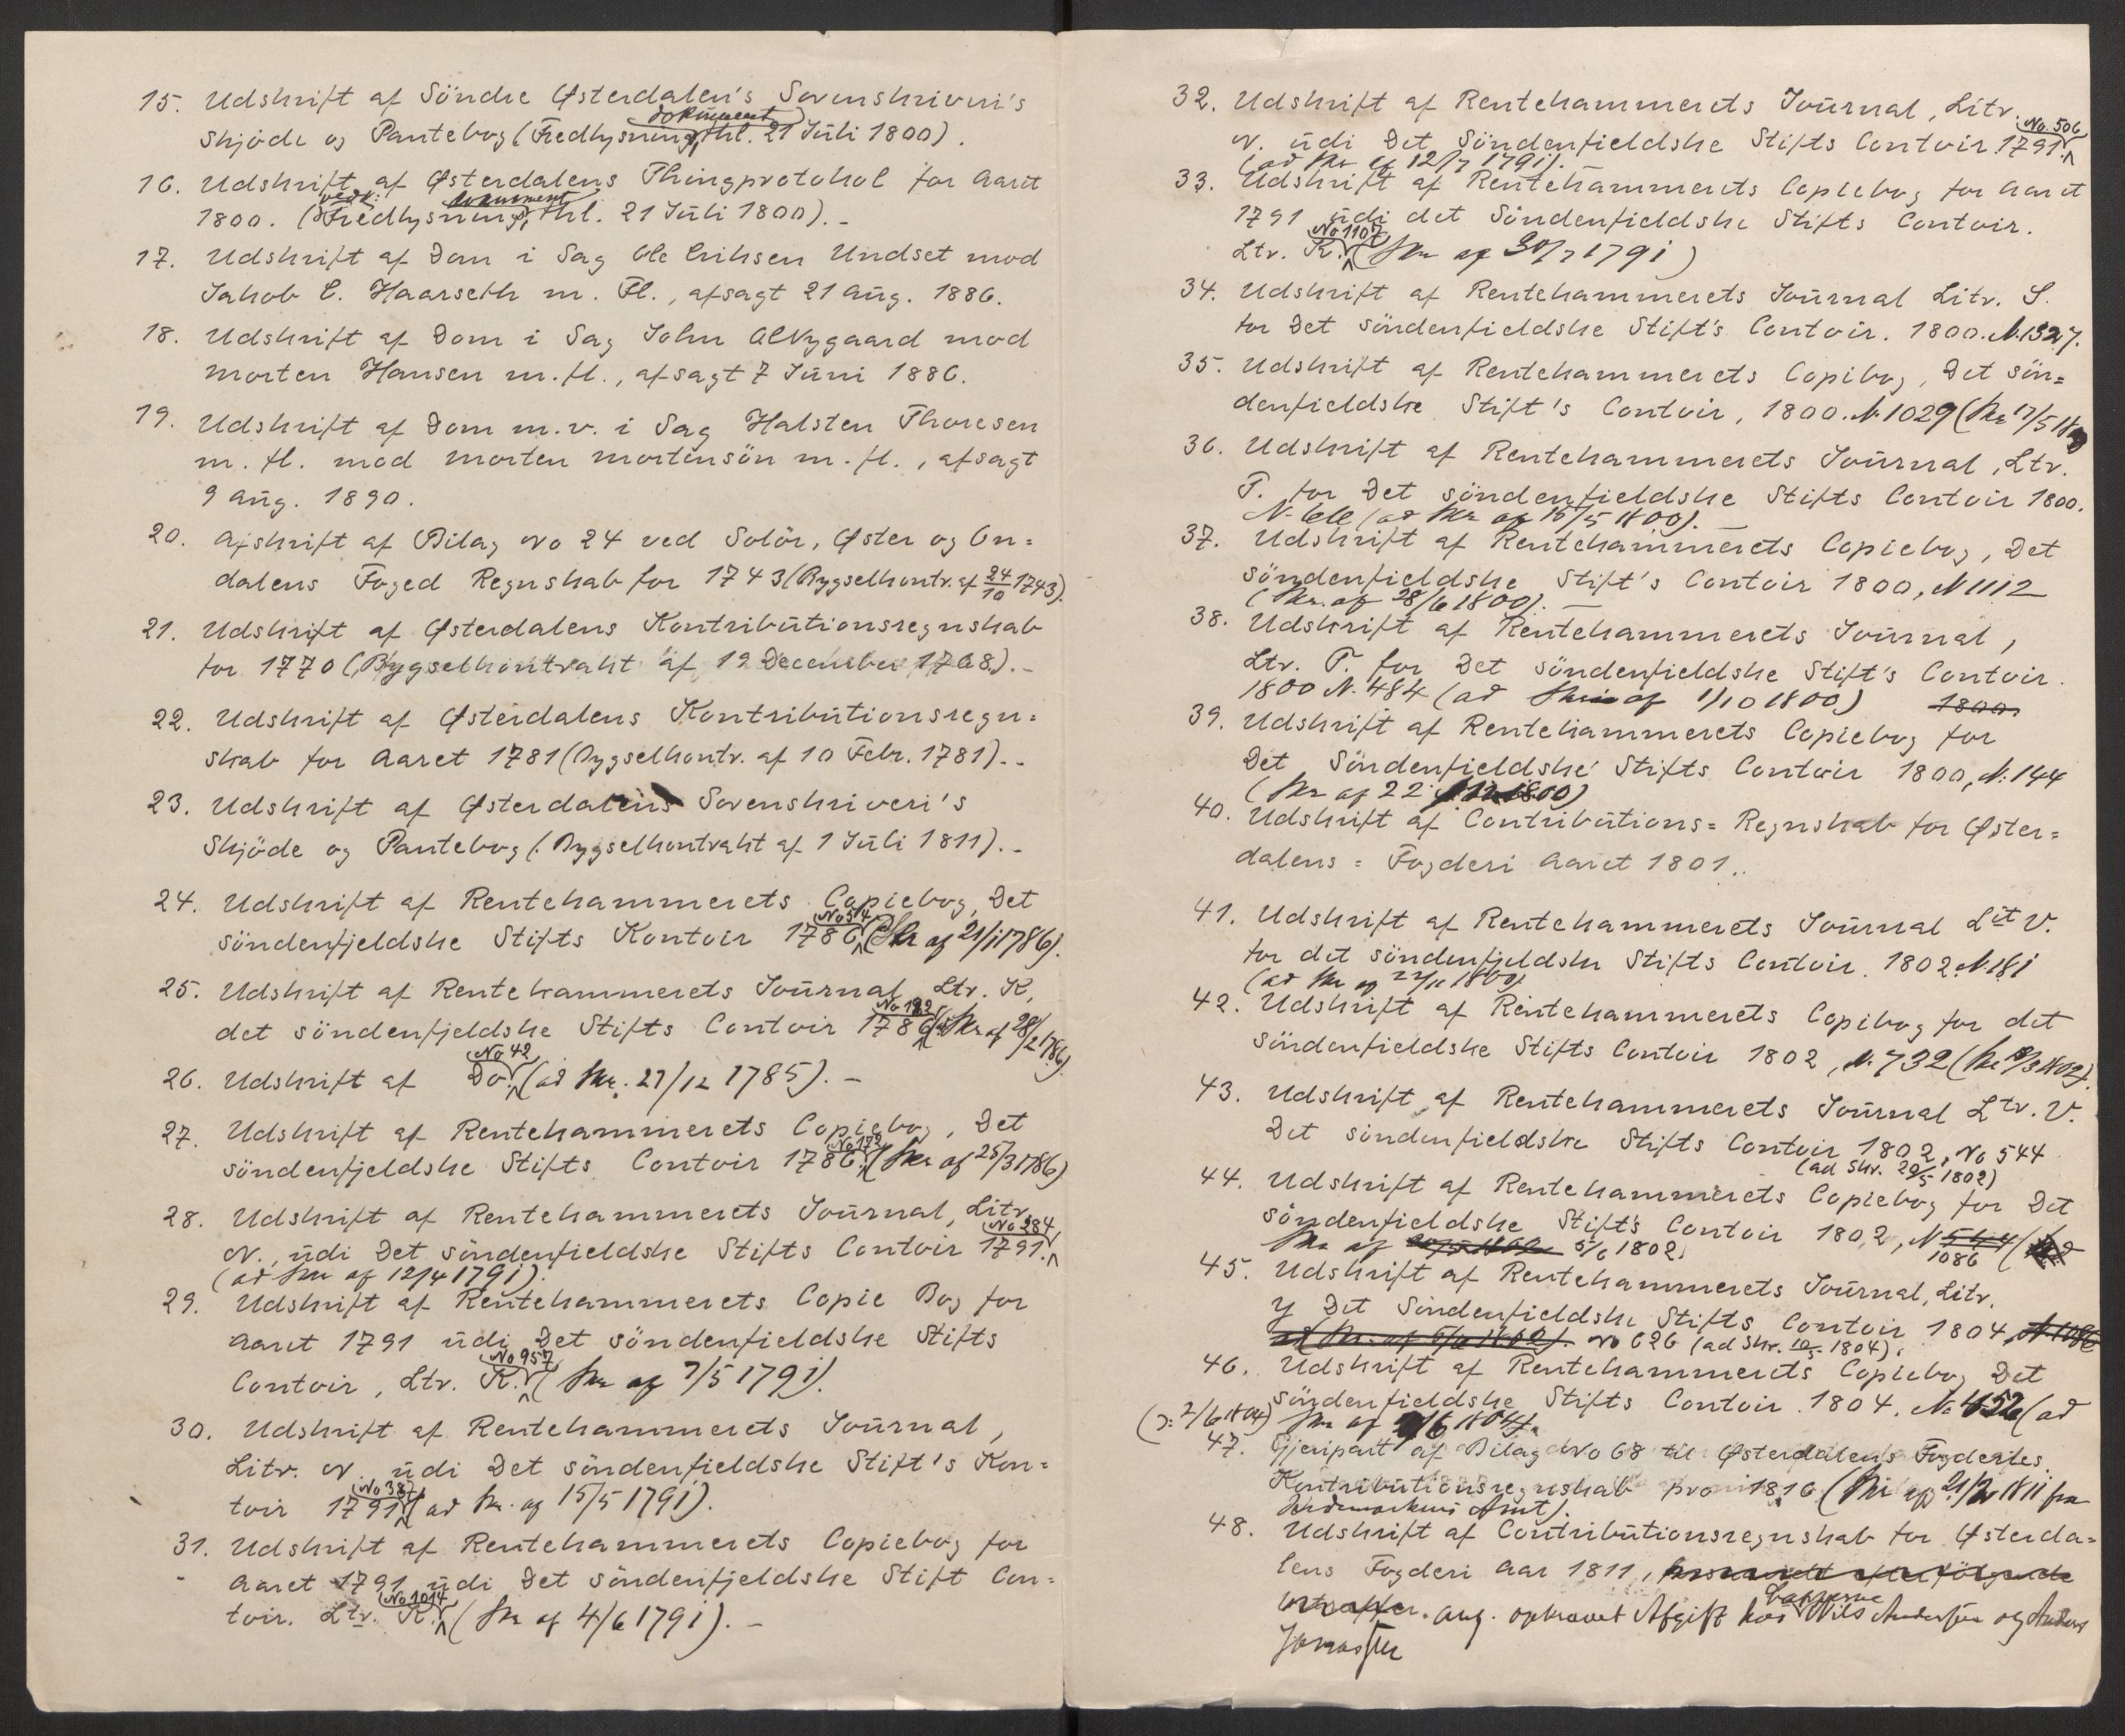 15. Udskrift af Söndre Østerdalen's Sorenskriveri's
Skjöde og Pantebog (Fredlysningsdokument thl. 21 Juli 1800).
16. Udskrift af Østerdalens Thingprotokol for Aaret
1800. (vedk: Fredlysnings dokument thl. 21 Juli 1800). -
17. Udskrift af Dom i Sag Ole Eriksen Undset mod
Jakob E. Haarseth m. Fl., afsagt 21 Aug. 1886.
18. Udskrift af Dom i Sag John O. Nygaard mod
Morten Hansen m. fl., afsagt 7 Juni 1886.
19. Udskrift af Dom m. v. i Sag Halsten Thoresen
m. fl. mod Morten Mortensön m. fl., afsagt
9 Aug. 1890.
20. Afskrift af Bilag No 24 ved Solör, Øster og On=
dalens Foged Regnskab for 1743 (Bygselkontr. af 24/10 1743).
21. Udskrift af Østerdalens Kontributionsregnskab
for 1770 (Bygselkontrakt af 19 December 1768). -
22. Udskrift af Østerdalens Kontributionsregn=
skab for Aaret 1781 (Bygselkontr. af 10 Febr. 1781). -
23. Udskrift af Østerdalens Sorenskriveri's
Skjöde og Pantebog (Bygselkontrakt af 1 Juli 1811). -
24. Udskrift af Rentekammerets Copiebog, Det
söndenfjeldske Stifts Kontoir 1786, No 514 (Skr af 21/1 1786).
25. Udskrift af Rentekammerets Journal Ltr. K,
det söndenfjeldske Stifts Contoir 1786 No 192 (ad Skr af 28/2 1786)
26. Udskrift af Do. No 42 (ad Skr. 27/12 1785). -
27. Udskrift af Rentekammerets Copiebog, Det
söndenfjeldske Stifts Contoir 1786. No 172 (Skr af 25/3 1786)
28. Udskrift af Rentekammerets Journal, Litr.
N., udi Det söndenfieldske Stifts Contoir 1791. No 284
(ad Skr af 12/4 1791).
29. Udskrift af Rentekammerets Copie Bog for
Aaret 1791 udi Det söndenfieldske Stifts
Contoir, Ltr. K. No 957 (Skr af 7/5 1791).
30. Udskrift af Rentekammerets Journal,
Litr. N. udi Det söndenfieldske Stift's Kon=
toir 1791 No 387 (ad Skr. af 15/5 1791).
31. Udskrift af Rentekammerets Copiebog for
Aaret 1791 udi Det söndenfjeldske Stift Con=
toir. Ltr. K. No 1014 (Skr af 4/6 1791). -
32. Udskrift af Rentekammerets Journal, Litr.
N. udi Det Söndenfieldske Stifts Contoir 1791. No. 506
(ad Skr af 12/7 1791).
33. Udskrift af Rentekammerets Copiebog for Aaret
1791 udi det Söndenfieldske Stifts Contoir.
Ltr. K. No 1107 (Skr af 30/7 1791)
34. Udskrift af Rentekammerets Journal Litr. S.
for Det söndenfieldske Stift's Contoir. 1800. N. 1327.
35. Udskrift af Rentekammerets Copibog, Det sön=
denfieldske Stift's Contoir, 1800. N. 1029 (Skr 17/5
36. Udskrift af Rentekammerets Journal, Ltr.
T. for Det söndenfieldske Stifts Contoir 1800.
N. (ad Skr af 15/5 1800).
37. Udskrift af Rentekammerets Copiebog, Det
söndenfieldske Stift's Contoir 1800, N 1112
(Skr. af 28/6 1800). -
38. Udskrift af Rentekammerets Journal,
Ltr. T. for Det söndenfieldske Stift's Contoir.
1800 N. 484 (ad Skr af 1/10 1800) 1800.
39. Udskrift af Rentekammerets Copiebog for
Det Söndenfieldske Stifts Contoir 1800, N. 144
(Skr af 22 1800)
40. Udskrift af Contributions= Regnskab for Øster=
dalens= Fogderi Aaret 1801.
41. Udskrift af Rentekammerets Journal Lit V.
for det söndenfjeldske Stifts Contoir. 1802. N. 181
(ad Skr af
42. Udskrift af Rentekammerets Copibog for det
söndenfieldske Stifts Contoir 1802, N. 732 (Skr 1802).
43. Udskrift af Rentekammerets Journal Ltr. V.
Det söndenfieldske Stifts Contoir 1802, No 544
(ad Skr. 29/5 1802)
44. Udskrift af Rentekammerets Copiebog for Det
söndenfieldske Stift's Contoir 1802, N 544 1086 (
Skr af 5/6 1802)
45. Udskrift af Rentekammerets Journal, Litr.
Y Det Söndenfieldske Stifts Contoir 1804, N. 1086
No 626 (ad Skr. 10/5 1804).
46. Udskrift af Rentekammerets Copiebog Det
söndenfieldske Stifts Contoir 1804. No 452 (ad
(ɔ: 2/6 1804) Skr af 1804).
47. Gjenpart af Bilag No 68 til Østerdalens Fogderies
Kontributionsregnskab pro 1810 (Skr af 1811 fra
Hedemarkens Amt).
48. Udskrift af Contributionsregnskab for Østerda=
lens Fogderi Aar 1811,
ang. opkrævet Afgift hos Lapperne Nils Andersen og Anders
Jonassen